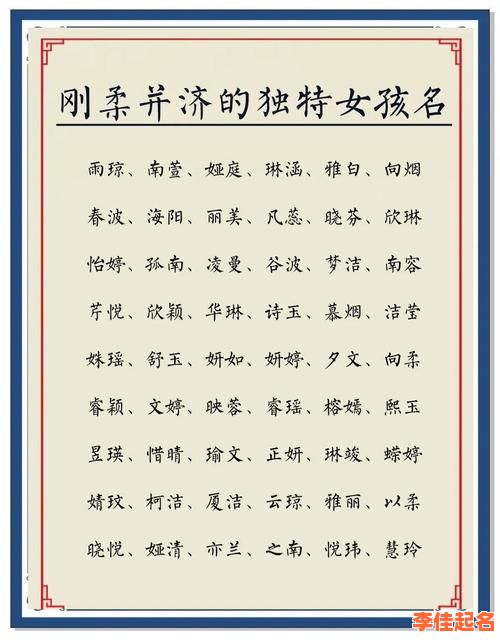 刚柔并济的独特女孩名
雨琼、南萱、娅庭、琳涵、雅白、向烟
春波、海阳、丽美、凡蕊、晓芬、欣琳
怡婷、孤南、凌曼、谷波、梦洁、南容
芹悦、欣颖、华琳、诗玉、慕烟、洁莹
姝瑶、舒玉、妍如、妍婷、夕文、向柔
睿颖、文婷、映蓉、睿瑶、榕嫣、熙玉
昱瑛、惜晴、瑜文、正妍、琳竣、蝾婷
婧玟、柯洁、厦洁、云琼、雅丽、以柔
晓悦、娅清、亦兰、之南、悦玮、慧玲
李佳起名